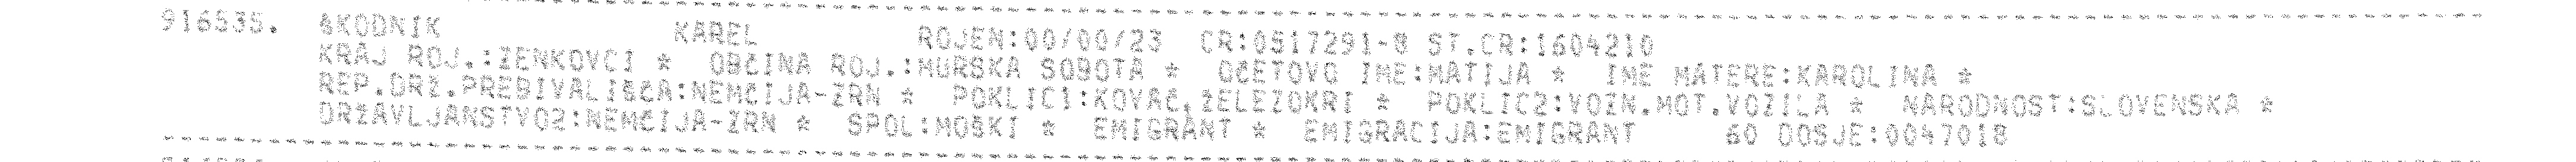 916535. ŠKODNIK KAREL ROJEN:00/00/23 CR:0517291-8 ST.CR:1604210
KRAJ ROJ.:ŽENKOVCI * OBČINA ROJ.:MURSKA SOBOTA * OČETOVO IME:MATIJA * IME MATERE:KAROLINA *
REP.DRŽ.PREBIVALIŠČA:NEMČIJA-ZRN * POKLIC1:KOVAČ,ŽELEZOKRI * POKLIC2:VOZN.MOT.VOZILA * NARODNOST:SLOVENSKA *
DRŽAVLJANSTVO2:NEMČIJA-ZRN * SPOL:MOŠKI * EMIGRANT * EMIGRACIJA:EMIGRANT 60 DOSJE:0047018